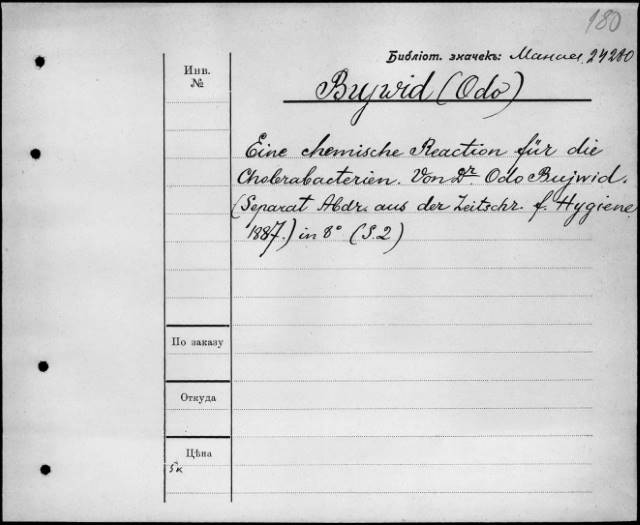 180
Библiот. значекъ: 24280
Инв.
№
Bujwid (Odo)
Eine chemische Reaction für die
Cholerabacterien. Von Dr. Odo Bujwid.
(Separat Abdr. aus der Zeitschr. f. Hygiene
1887.) in 8° (S. 2)
По заказу
Откуда
Цѣна
5к